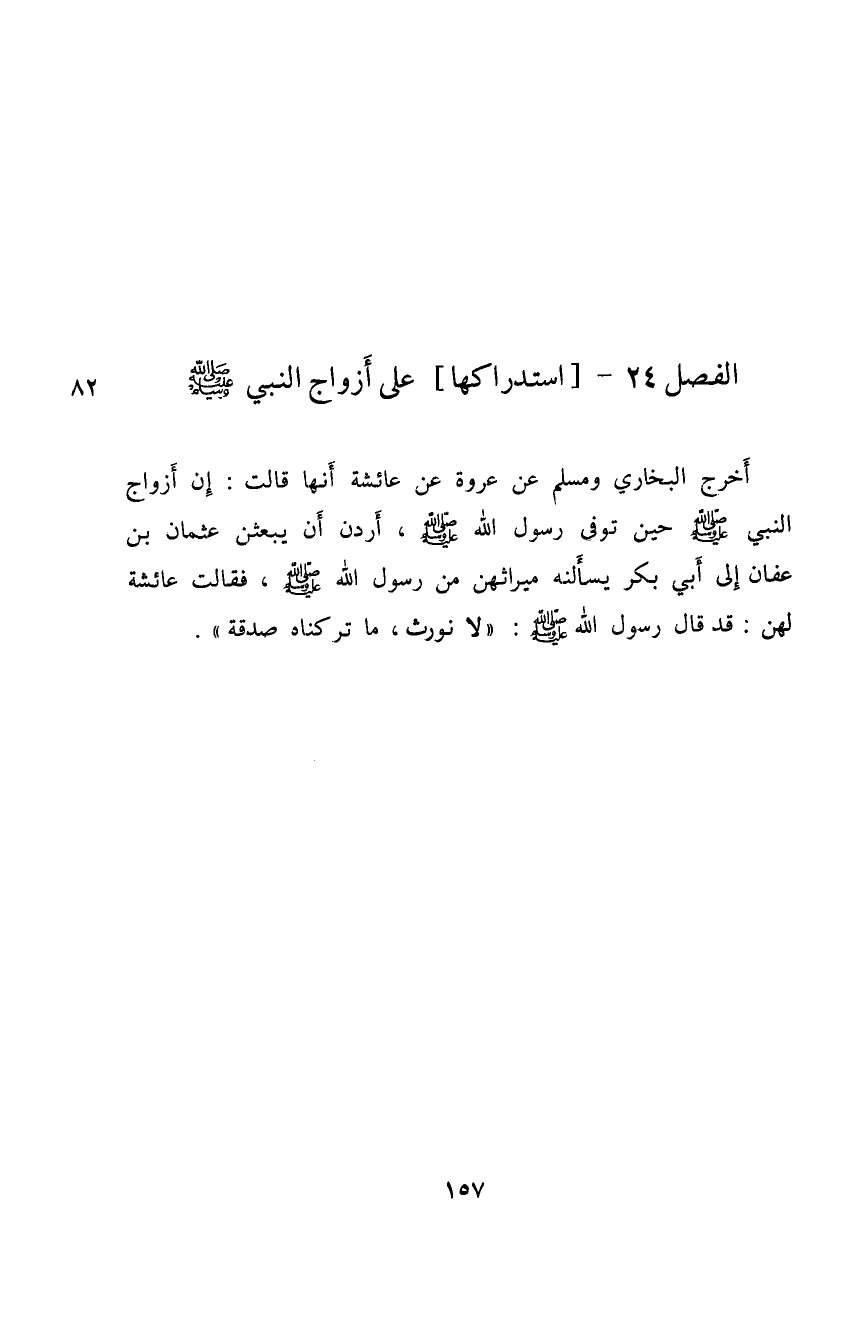 الفصل ٢٤ - [ استدراكها ] على أَزواج النبي ﷺ ٨٢
أَخرج البخاري ومسلم عن عروة عن عائشة أَنها قالت : إِن أَزواج
النبي ﷺ حين توفى رسول الله ﷺ ، أَردن أَن يبعثن عثمان بن
عفان إِلى أَبي بكر يسأَلنه ميراثهن من رسول الله ﷺ ، فقالت عائشة
لهن : قد قال رسول الله ﷺ : «لا نورث ، ما تركناه صدقة » .
١٥٧